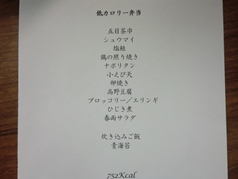 低カロリー弁当
五目茶巾
シュウマイ
塩鮭
鶏の照り焼き
ナポリタン
小えび天
卵焼き
高野豆腐
ブロッコリー/エリンギ
ひじき煮
春雨サラダ
炊き込みご飯
青海苔
752Kcal